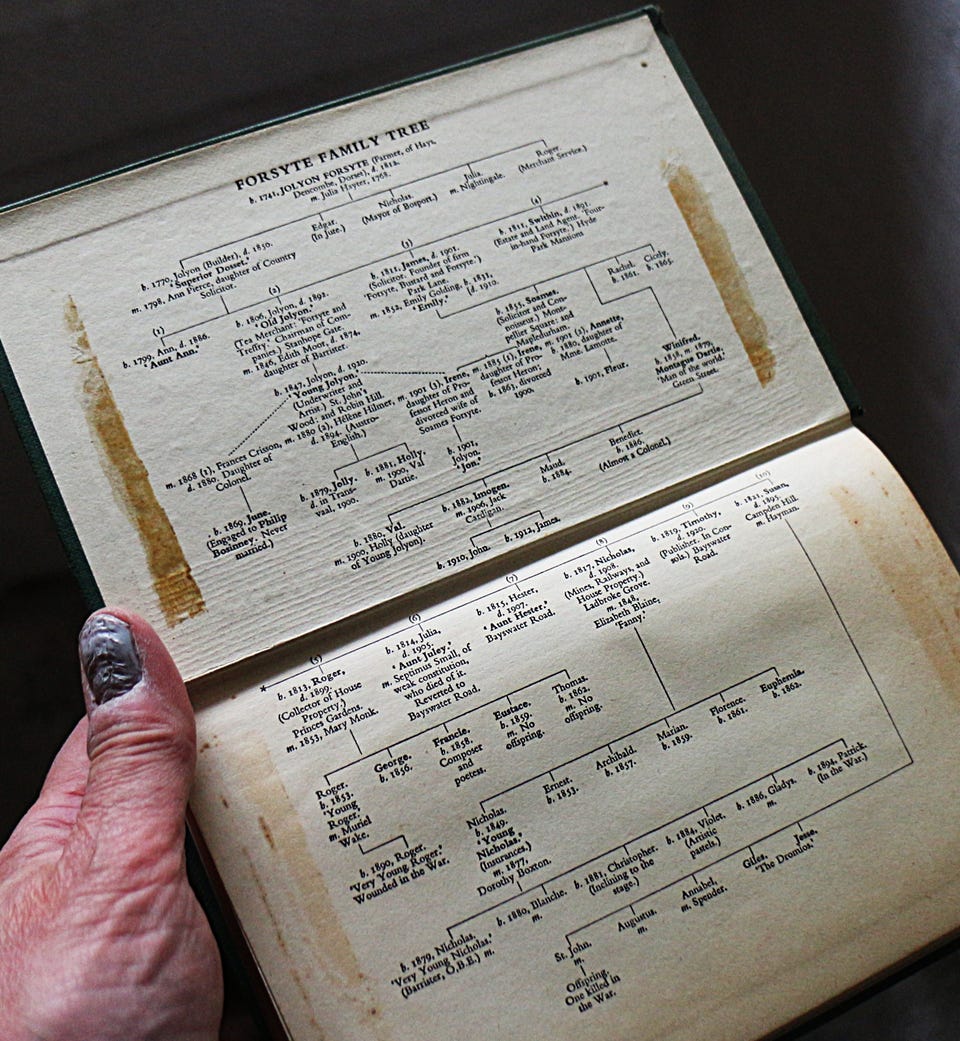 FORSYTE FAMILY TREE
b. 1741, JOLYON FORSYTE (Farmer, of Hays,
Dencombe, Dorset), d. 1812.
m. Julia Hayter, 1768.
b. 1770, Jolyon (Builder), d. 1850.
'Superior Dosset.'
m. 1798, Ann Pierce, daughter of Country
Solicitor.
Edgar.
(In Jute.)
Nicholas.
(Mayor of Bosport.)
Julia.
m. Nightingale.
Roger.
(Merchant Service.)
(1)
b. 1799, Ann, d. 1886.
'Aunt Ann.'
(2)
b. 1806, Jolyon, d. 1892.
'Old Jolyon.'
(Tea Merchant: 'Forsyte and
Treffry.' Chairman of Com-
panies.) Stanhope Gate.
m. 1846, Edith Moor, d. 1874,
daughter of Barrister.
(3)
b. 1811, James, d. 1901.
(Solicitor. Founder of firm
'Forsyte, Bustard and Forsyte.')
Park Lane.
m. 1852, Emily Golding, b. 1831,
'Emily.' d. 1910.
(4)
b. 1811, Swithin, d. 1891.
(Estate and Land Agent. 'Four-
in-hand Forsyte.') Hyde
Park Mansions
b. 1847, Jolyon, d. 1920.
'Young Jolyon.'
(Underwriter and
Artist.) St. John's
Wood: and Robin Hill.
m. 1868 (1), Frances Crisson,
d. 1880. Daughter of
Colonel.
m. 1880 (2), Hélène Hilmer,
d. 1894. (Austro-
English.)
m. 1901 (3), Irene,
daughter of Pro-
fessor Heron and
divorced wife of
Soames Forsyte.
b. 1855, Soames.
(Solicitor and Con-
noisseur.) Mont-
pellier Square: and
Mapledurham.
m. 1885 (1), Irene,
daughter of Pro-
fessor Heron:
b. 1863, divorced
1900.
m. 1901 (2), Annette,
b. 1880, daughter of
Mme. Lamotte.
b. 1901, Fleur.
Rachel.
b. 1861.
Cicely.
b. 1865.
Winifred,
b. 1858, m. 1879,
Montague Dartie,
'Man of the world.'
Green Street.
b. 1869, June.
(Engaged to Philip
Bosinney. Never
married.)
b. 1879, Jolly.
d. in Trans-
vaal, 1900.
b. 1881, Holly.
m. 1900, Val
Dartie.
b. 1901,
Jolyon.
'Jon.'
b. 1880, Val.
m. 1900, Holly (daughter
of Young Jolyon).
b. 1882, Imogen.
m. 1906, Jack
Cardigan.
Maud,
b. 1884.
Benedict.
b. 1886.
(Almost a Colonel.)
b. 1910, John.
b. 1912, James.
(5)
b. 1813, Roger,
d. 1899.
(Collector of House
Property.)
Princes Gardens.
m. 1853, Mary Monk.
(6)
b. 1814, Julia,
d. 1905.
'Aunt Juley.'
m. Septimus Small, of
weak constitution,
who died of it.
Reverted to
Bayswater Road.
(7)
b. 1815, Hester,
d. 1907.
'Aunt Hester.'
Bayswater Road.
(8)
b. 1817, Nicholas,
d. 1908.
(Mines, Railways, and
House Property.)
Ladbroke Grove.
m. 1848,
Elizabeth Blaine,
'Fanny.'
(9)
b. 1819, Timothy,
d. 1920.
(Publisher. In Con-
sols.) Bayswater
Road.
(10)
b. 1821, Susan,
d. 1895.
Campden Hill.
m. Hayman.
Roger.
b. 1853.
'Young
Roger.'
m. Muriel
Wake.
George.
b. 1856.
Francie.
b. 1858.
Composer
and
poetess.
Eustace.
b. 1859.
m. No
offspring.
Thomas.
b. 1862.
m. No
offspring.
b. 1890, Roger.
'Very Young Roger.'
Wounded in the War.
Nicholas.
b. 1849.
'Young
Nicholas.'
(Insurances.)
m. 1877,
Dorothy Boxton.
Ernest.
b. 1853.
Archibald.
b. 1857.
Marian.
b. 1859.
Florence.
b. 1861.
Euphemia.
b. 1862.
b. 1879, Nicholas.
'Very Young Nicholas.'
(Barrister, O.B.E.) m.
b. 1880, Blanche.
m.
b. 1881, Christopher.
(Inclining to the
stage.)
b. 1884, Violet.
(Artistic
pastels.)
b. 1886, Gladys.
m.
b. 1894, Patrick.
(In the War.)
St. John.
m.
Offspring.
One killed in
the War.
Augustus.
m.
Annabel,
m. Spender.
Giles.
Jesse.
'The Dromios.'